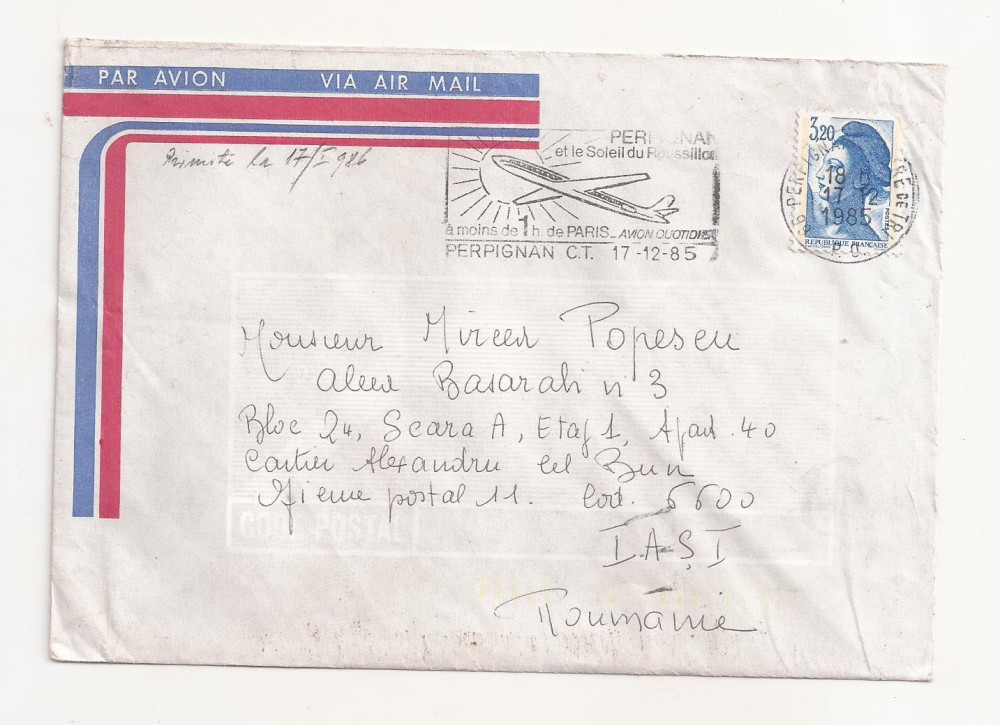 PAR AVION VIA AIR MAIL
Primită la 17/I 986
PERPIGNAN
et le Soleil du Roussillon
à moins de 1 h. de PARIS_AVION QUOTIDIEN
PERPIGNAN C.T. 17-12-85
3,20
PERPIGNAN
18 H
17-12
1985
POSTES
REPUBLIQUE FRANÇAISE
66 P.O.
Monsieur Mircea Popescu
alea Basarabi n° 3
Bloc 24, Scara A, Etaj 1, Apart. 40
Cartier Alexandru cel Bun
postal 11. Cod. 6600
IAŞI
Roumanie
CODE POSTAL